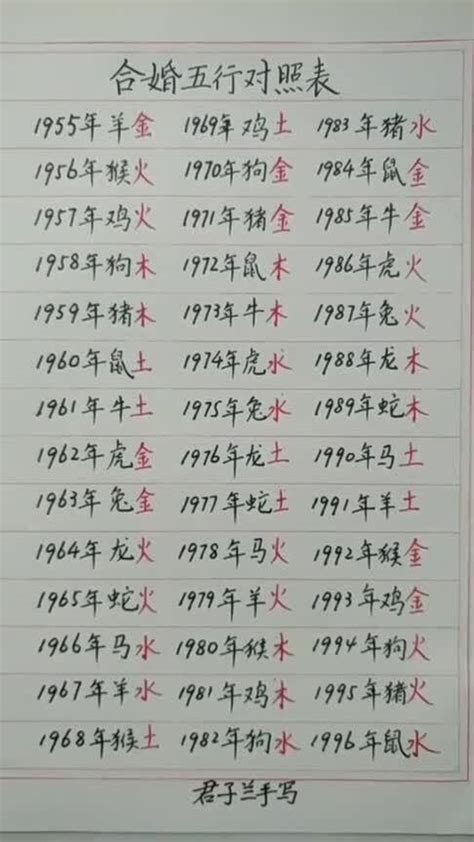 合婚五行对照表
1955年羊金 1969年鸡土 1983年猪水
1956年猴火 1970年狗金 1984年鼠金
1957年鸡火 1971年猪金 1985年牛金
1958年狗木 1972年鼠木 1986年虎火
1959年猪木 1973年牛木 1987年兔火
1960年鼠土 1974年虎水 1988年龙木
1961年牛土 1975年兔水 1989年蛇木
1962年虎金 1976年龙土 1990年马土
1963年兔金 1977年蛇土 1991年羊土
1964年龙火 1978年马火 1992年猴金
1965年蛇火 1979年羊火 1993年鸡金
1966年马水 1980年猴木 1994年狗火
1967年羊水 1981年鸡木 1995年猪火
1968年猴土 1982年狗水 1996年鼠水
君子兰手写